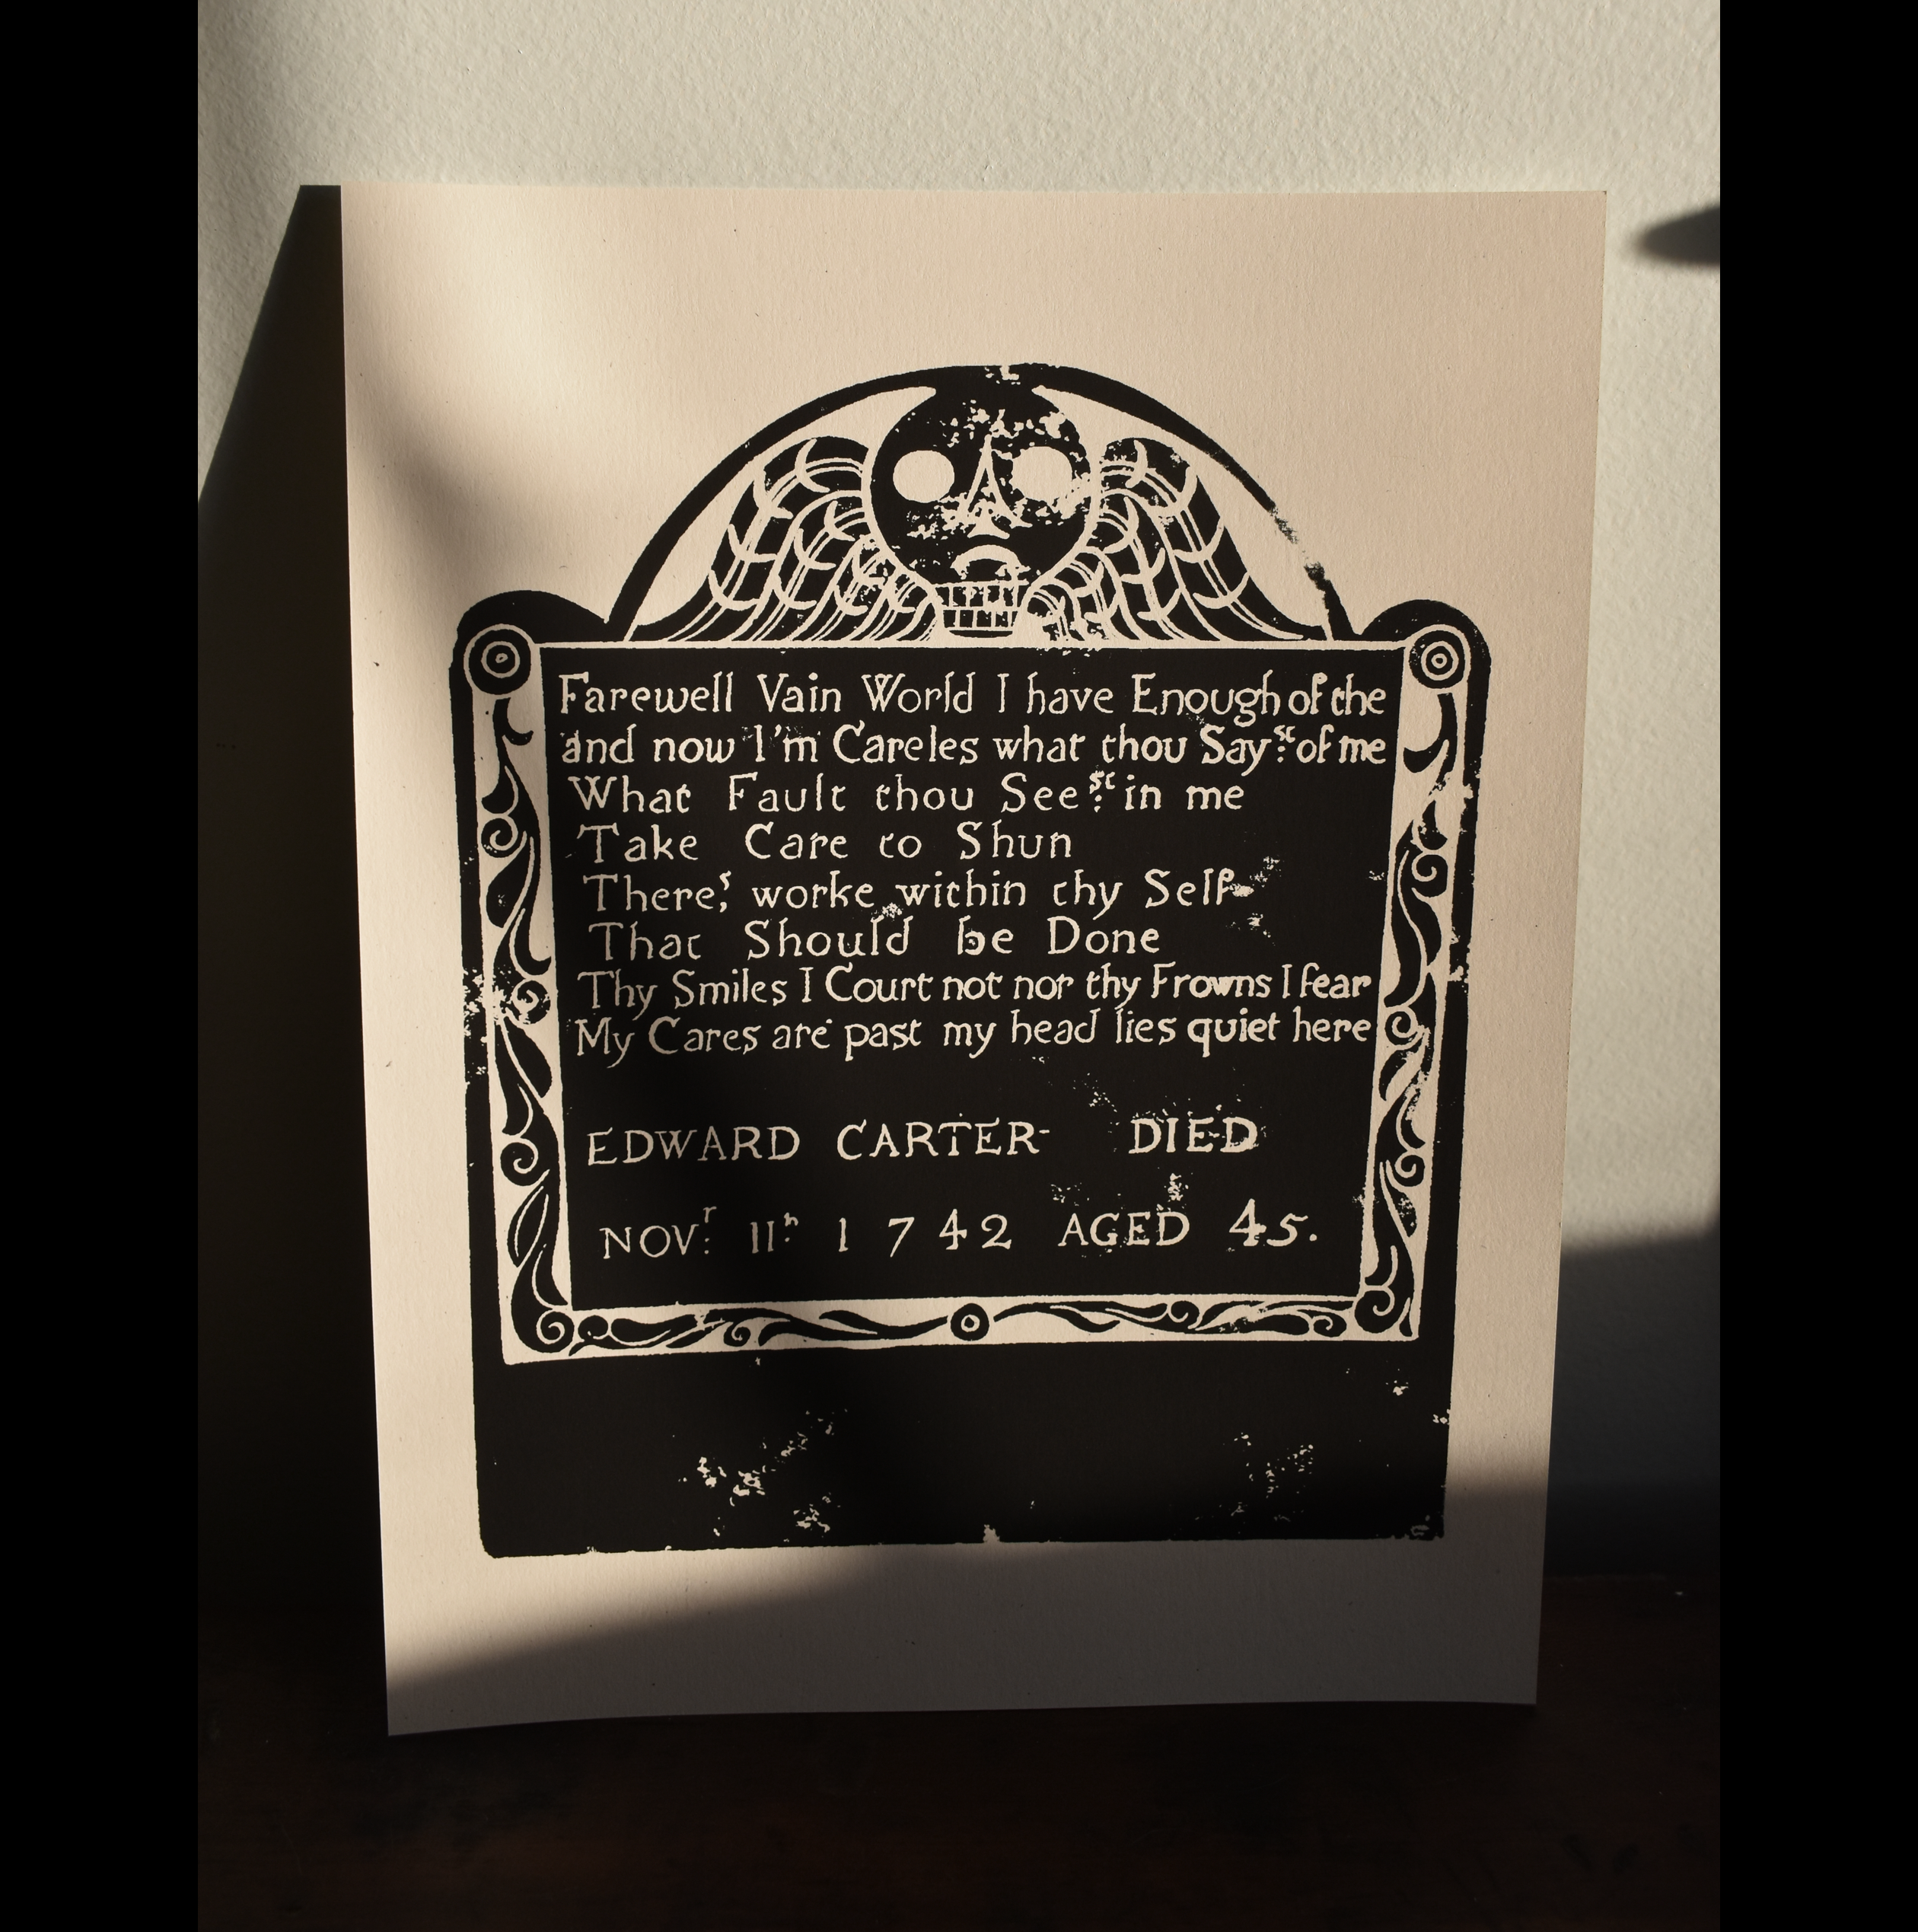 Farewell Vain World I have Enough of the
and now I'm Careles what thou Say:st of me
What Fault thou See:st in me
Take Care to Shun
There,s worke within thy Self
That Should be Done
Thy Smiles I Court not nor thy Frowns I fear
My Cares are past my head lies quiet here
EDWARD CARTER DIED
NOV:r 11:h 1742 AGED 45.